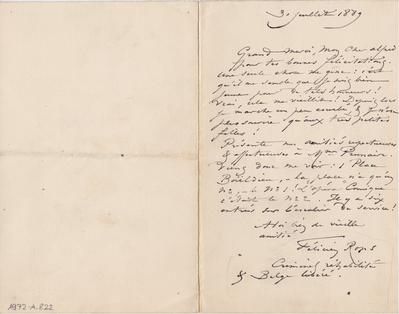 30 juillet 1889
Grand merci Mon cher Alfred
pour tes bonnes félicitations.
Une seule chose me gêne : c'est
qu'il me semble que je suis bien
jeune pour de tels honneurs !
Vrai, cela me vieillit ! Depuis lors
je marche un peu courbé & je n'ose
plus sourire qu'aux très petites
filles !
Présente mes amitiés respectueuses
& affectueuses à Mme
Viens donc me voir : 1 Place
Boïeldieu, – la place n'a qu'un
No, – le No 1. L'Opéra Comique
c'était le No 2. Il y a six
entrées sur l'escalier de service !
A toi de vieille
amitié
Félicien Rops
Criminel réhabilité
& Belge libéré.
1972-A.822